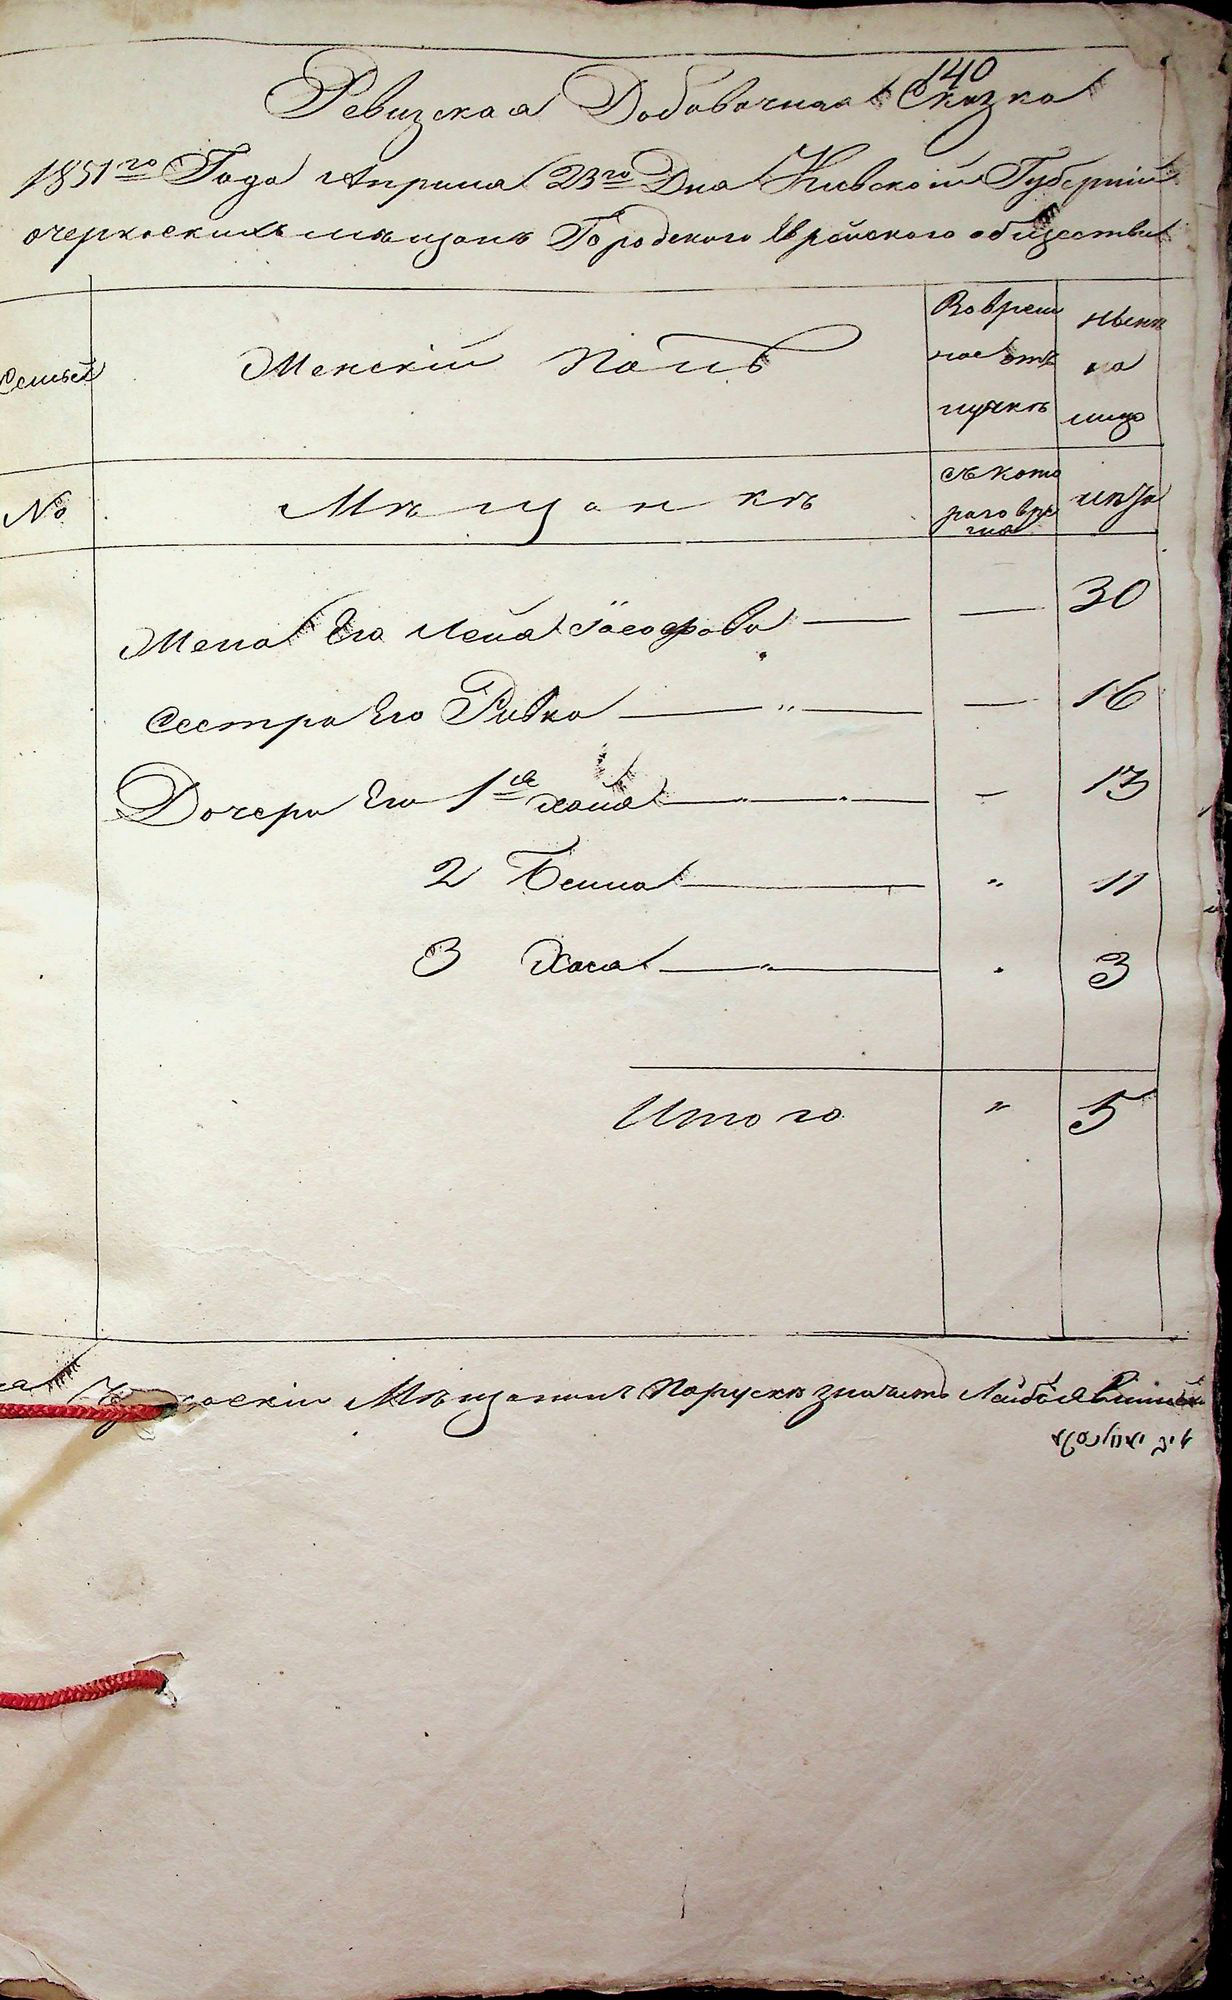 140
Ревизская Добавочная Сказка
1851го Года Априля 23го Дня Киевской Губерній
очеркоскихъ мѣщанъ Городского Еврейского общества
Семьей
Женскій Полъ
Во время
нос отъ
лучкѣ
нынѣ
на
лицо
№
Мѣщанкѣ
съ кото
раго вре
мя
лѣта
Жена Его Лея Іосіофова — 30
Сестра Его Ривка — " — — 16
Дочери Его 1я Хана — " — — 13
2 Бейла — " 11
3 Хася — " 3
Итого " 5
Мѣщанинъ Поруски значитъ Лейба